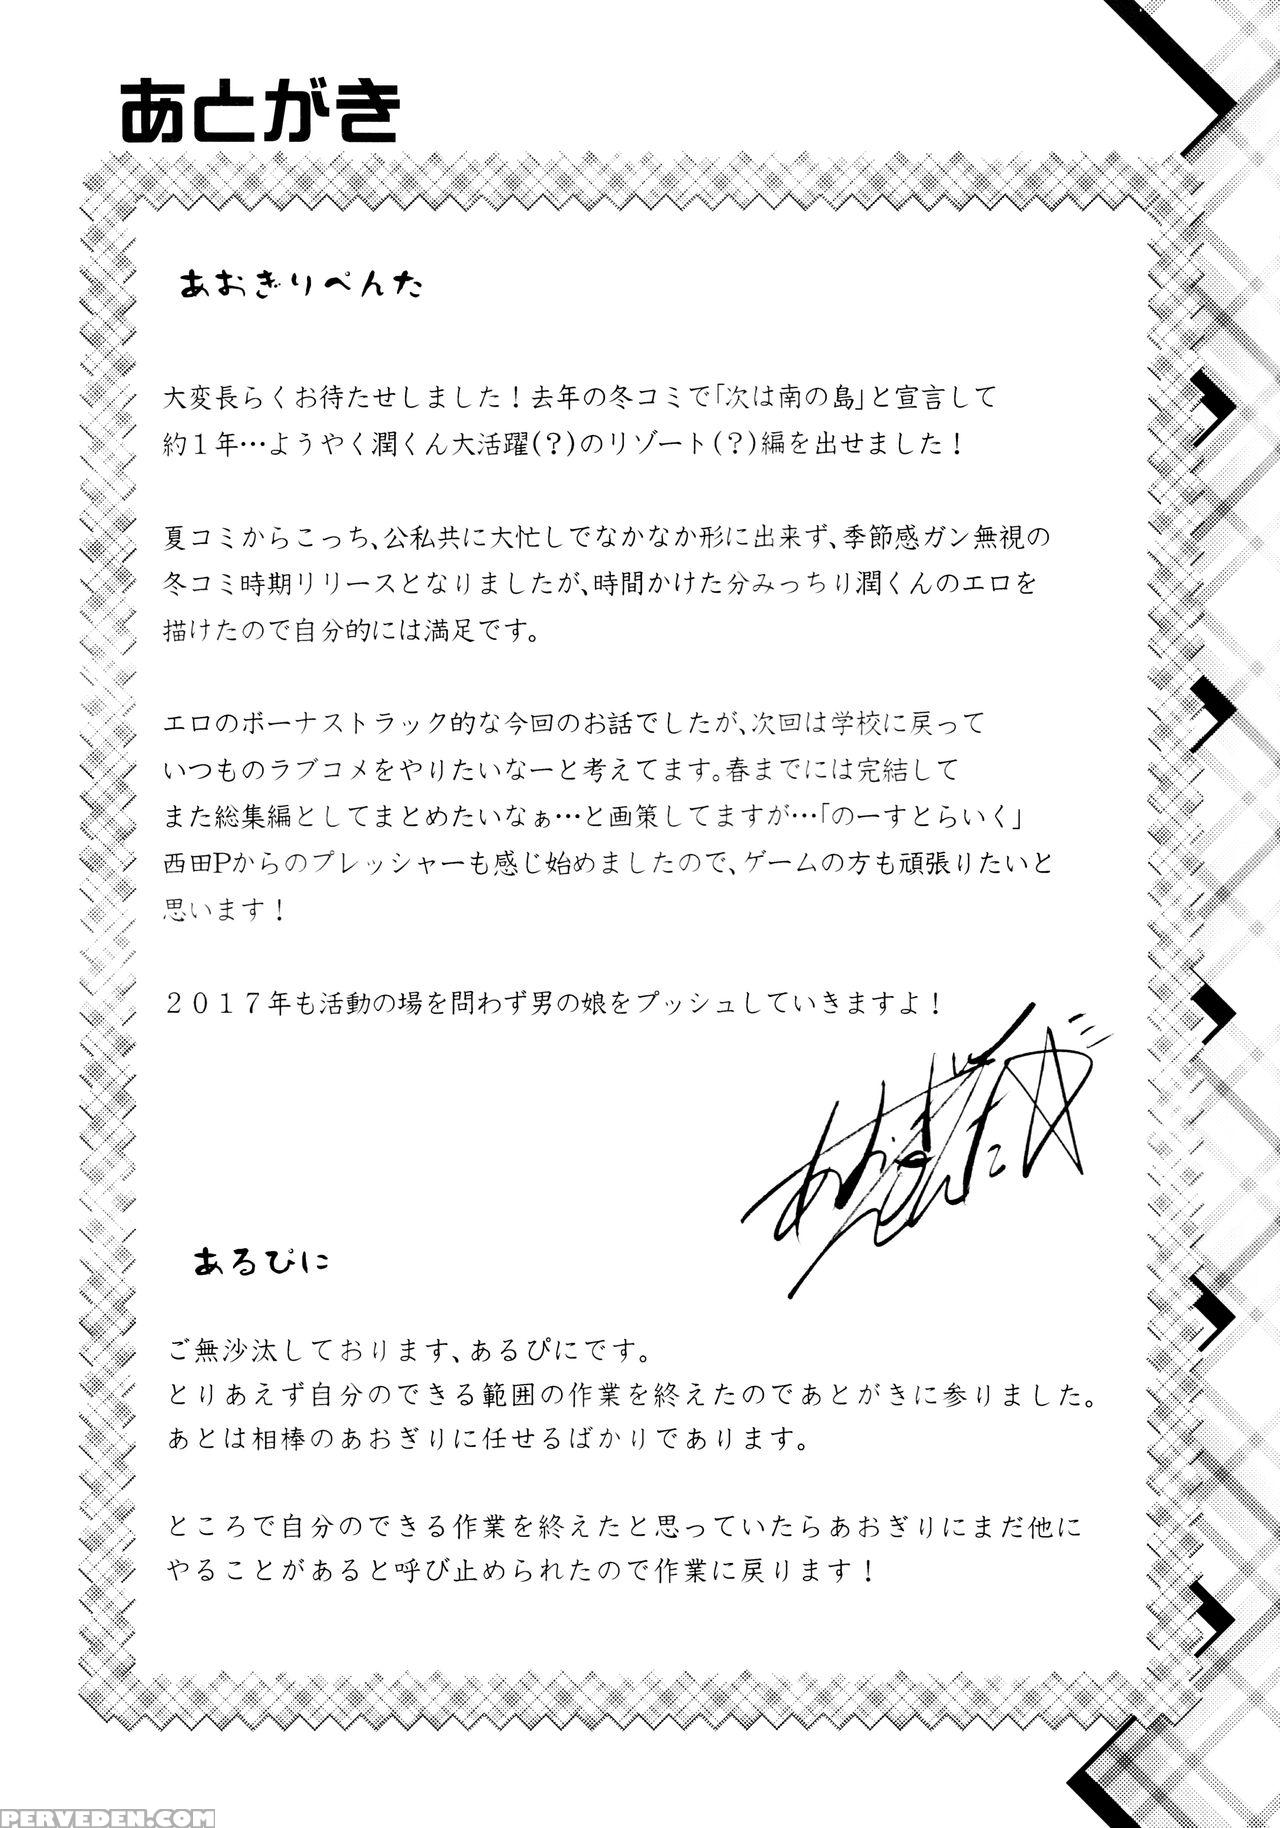 あとがき
あおぎりぺんた
大変長らくお待たせしました！去年の冬コミで「次は南の島」と宣言して
約１年…ようやく潤くん大活躍(？)のリゾート(？)編を出せました！
夏コミからこっち、公私共に大忙しでなかなか形に出来ず、季節感ガン無視の
冬コミ時期リリースとなりましたが、時間かけた分みっちり潤くんのエロを
描けたので自分的には満足です。
エロのボーナストラック的な今回のお話でしたが、次回は学校に戻って
いつものラブコメをやりたいなーと考えてます。春までには完結して
また総集編としてまとめたいなぁ…と画策してますが…「のーすとらいく」
西田Pからのプレッシャーも感じ始めましたので、ゲームの方も頑張りたいと
思います！
２０１７年も活動の場を問わず男の娘をプッシュしていきますよ！
あおぎりぺんた
あるぴに
ご無沙汰しております、あるぴにです。
とりあえず自分のできる範囲の作業を終えたのであとがきに参りました。
あとは相棒のあおぎりに任せるばかりであります。
ところで自分のできる作業を終えたと思っていたらあおぎりにまだ他に
やることがあると呼び止められたので作業に戻ります！
PERVEDEN.COM